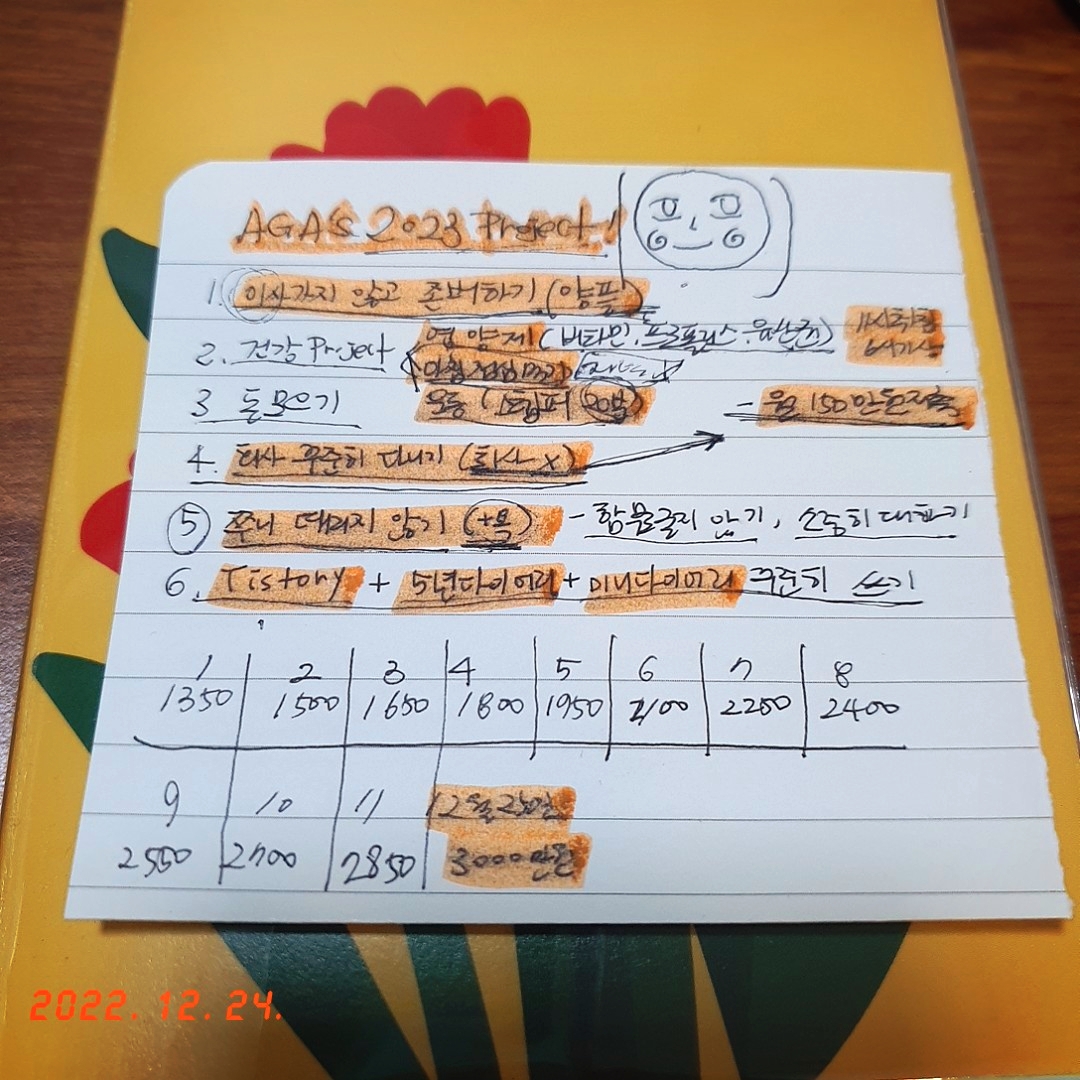 AGA'S 2023 Project!
1. 이사가지 않고 존버하기 (양평)
2. 건강 Project 영양제 (비타민, 프로폴리스
11시취침
6시기상
아침 점심
3 돈모으기 운동 (스텝퍼 20분) - 월 150만원저축
4. 회사 꾸준히 다니기 (퇴사 X)
⑤ 쭈니 때리지 않기 (+욕) - 함부로 않기, 소중히 대하기
6. Tistory + 5년다이어리 + 미니다이어리 꾸준히 쓰기
1 2 3 4 5 6 7 8
1350 1500 1650 1800 1950 2100 2250 2400
9 10 11 12월
2550 2700 2850 3000만원
2022. 12. 24.